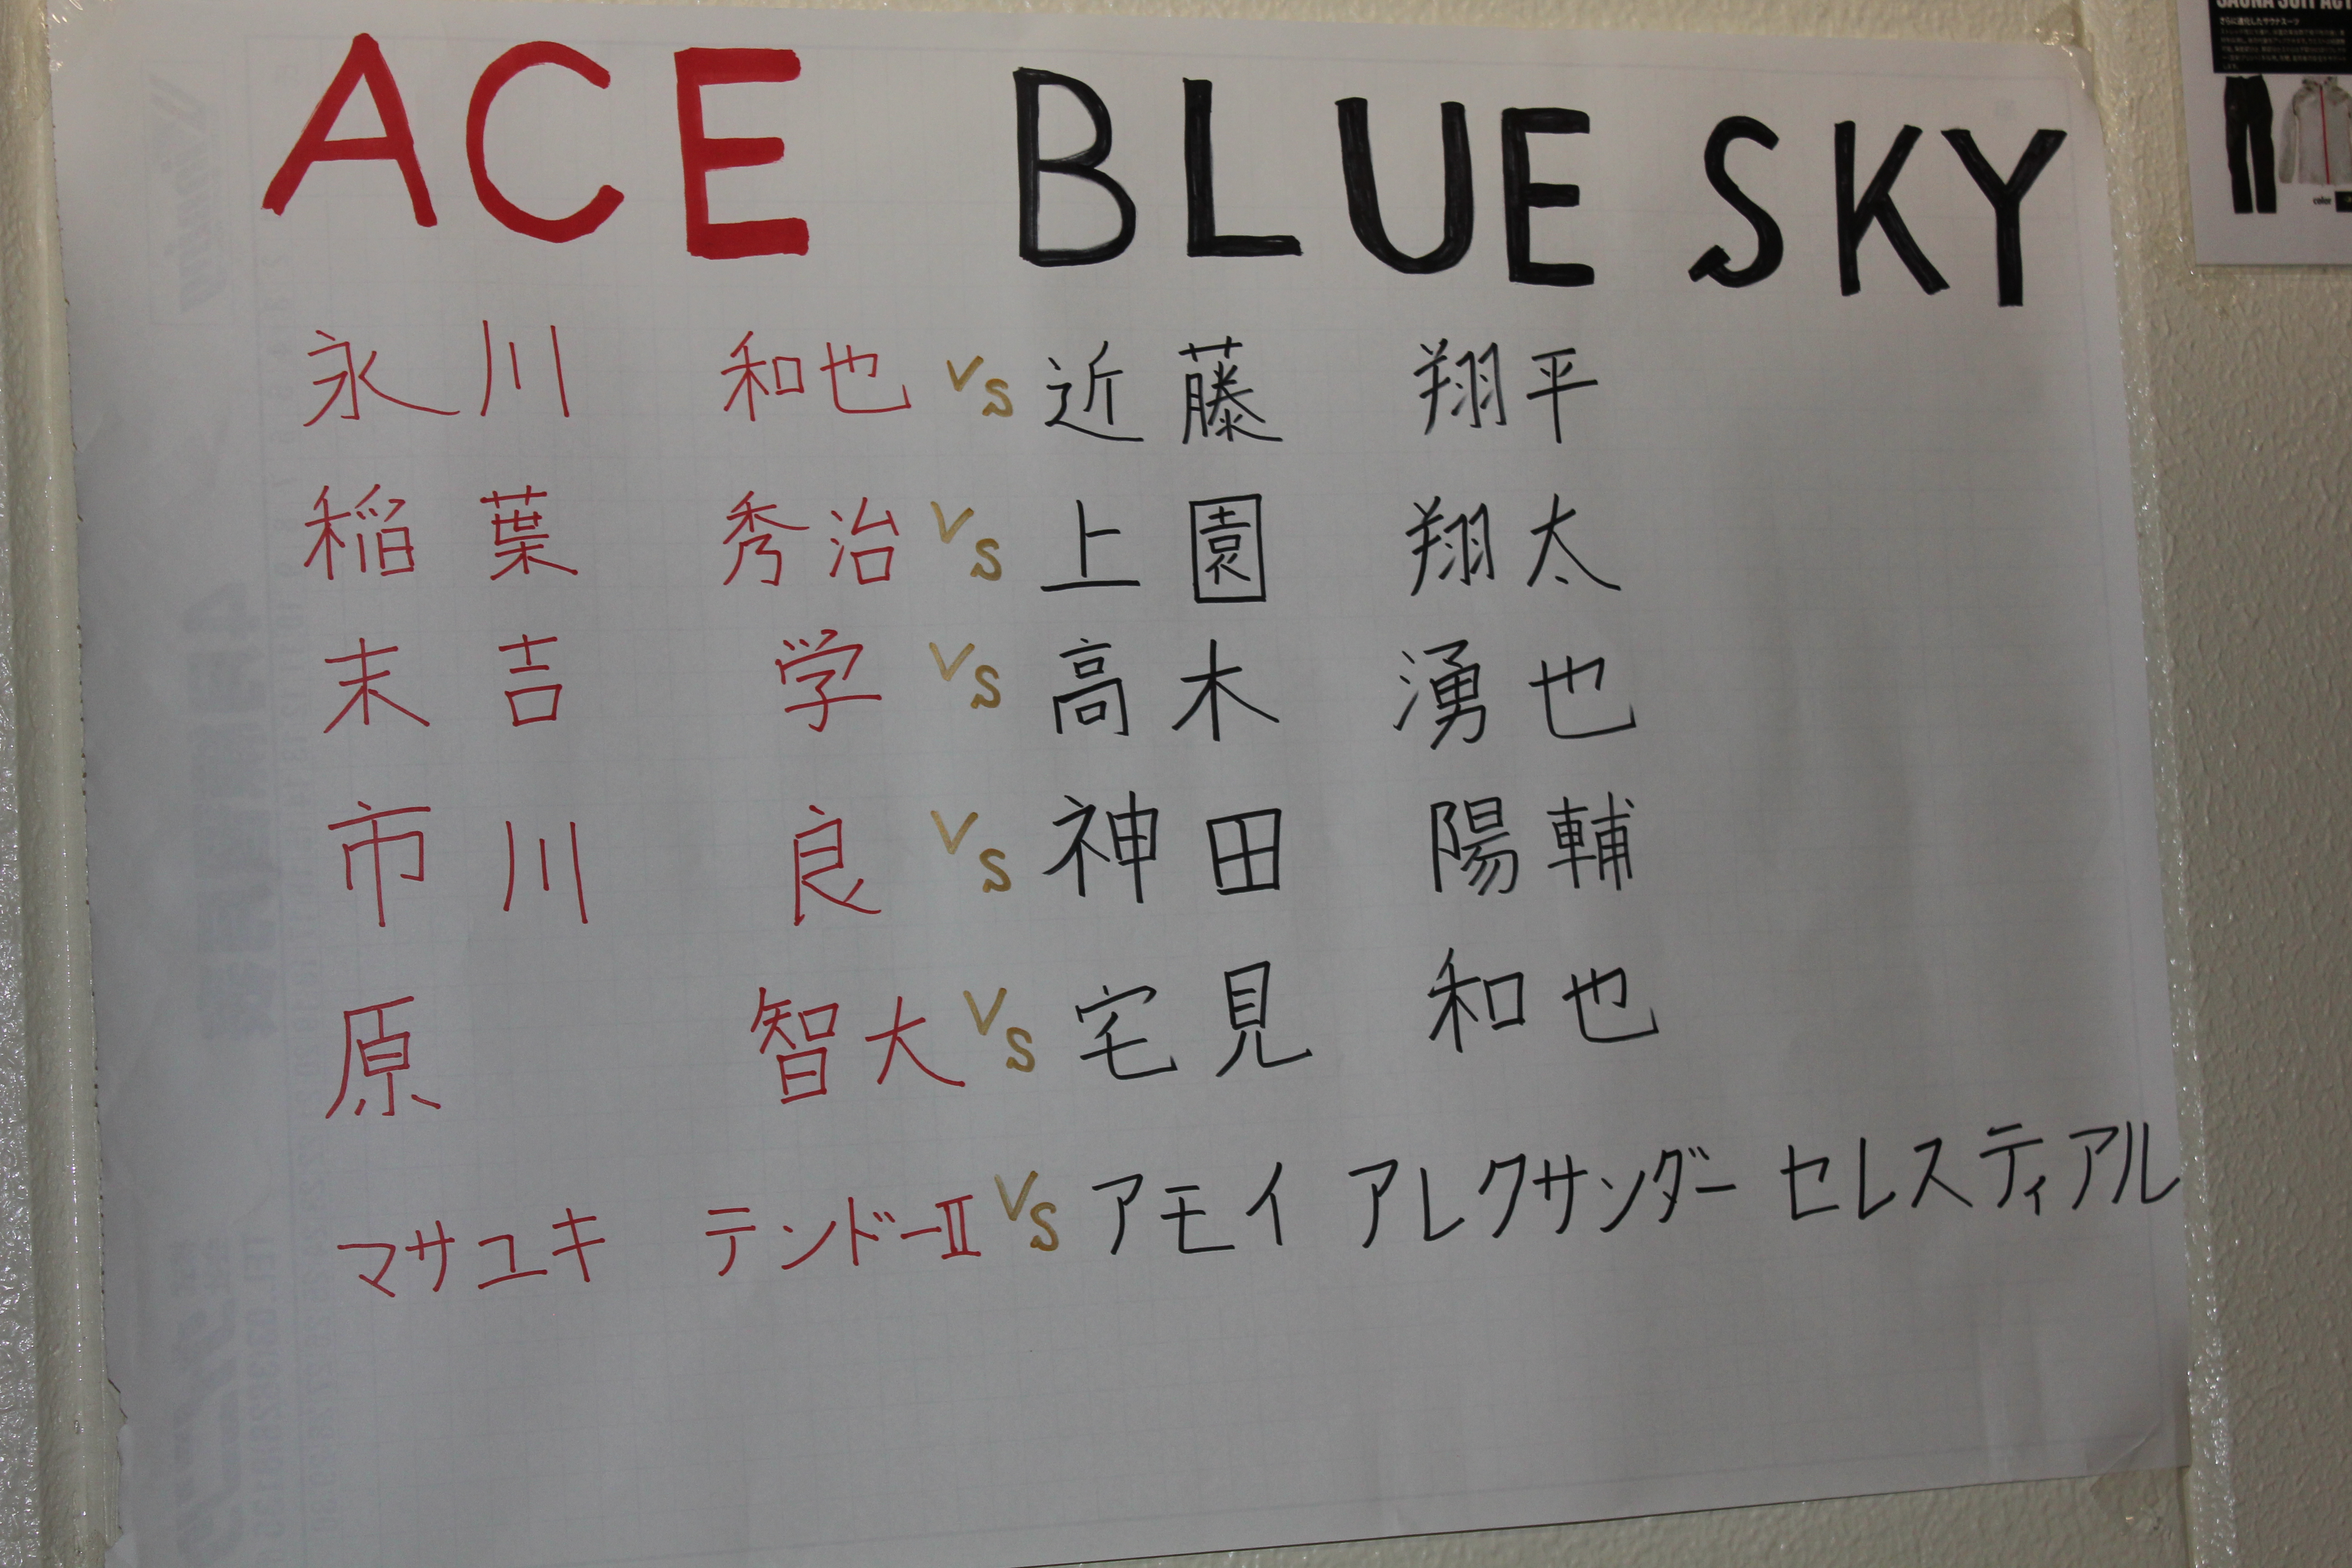 ACE BLUE SKY
永川 和也 VS 近藤 翔平
稲葉 秀治 VS 上園 翔太
末吉 学 VS 高木 湧也
市川 良 VS 神田 陽輔
原 智大 VS 宅見 和也
マサユキ テンドーⅡ VS アモイ アレクサンダー セレスティアル
color